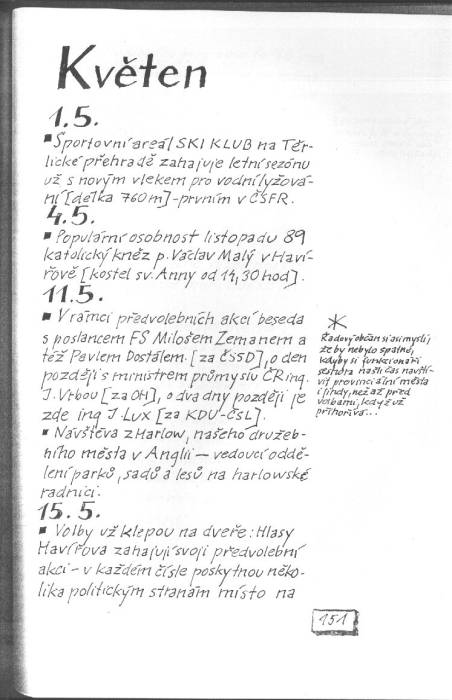 Květen
1.5.
▪ Sportovní areál SKI KLUB na Těr-
lické přehradě zahajuje letní sezónu
už s novým vlekem pro vodní lyžová-
ní [délka 760m] - prvním v ČSFR.
4.5.
▪ Populární osobnost listopadu 89
katolický kněz p. Václav Malý v Haví-
řově [kostel sv. Anny od 14,30 hod].
11.5.
▪ V rámci předvolebních akcí beseda
s poslancem FS Milošem Zemanem a
též Pavlem Dostálem. [za ČSSD], o den
později s ministrem průmyslu ČR ing.
J. Vrbou [za OH], o dva dny později je
zde ing J. Lux [za KDU-ČSL].
▪ Návštěva z Harlow, našeho družeb-
ního města v Anglii – vedoucí oddě-
lení parků, sadů a lesů na harlowské
radnici.
15.5.
▪ Volby už klepou na dveře: Hlasy
Havířova zahajují svoji předvolební
akci – v každém čísle poskytnou něko-
lika politickým stranám místo na
*
Řadový občan si asi myslí,
že by nebylo špatné,
kdyby si funkcionáři
shora našli čas navští-
vit provinciální města
i jindy, než až před
volbami, když už
přihořívá...
151